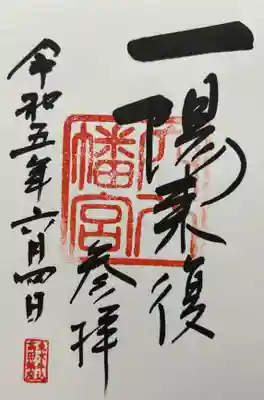 一陽来復
参拝
令和五年六月四日
幡宮